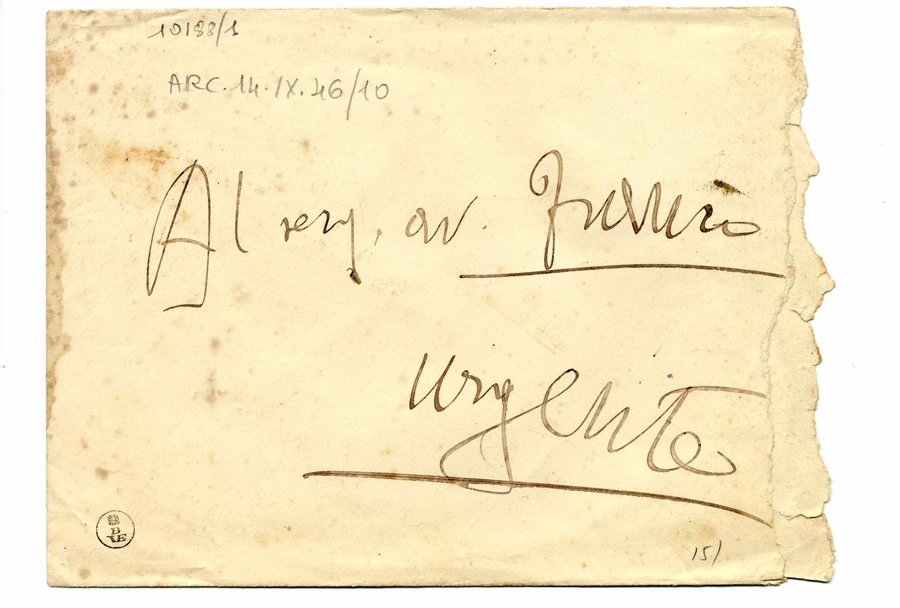 10188/1
ARC.14.IX.46/10
Al av.
Urgente
B
VE
15/